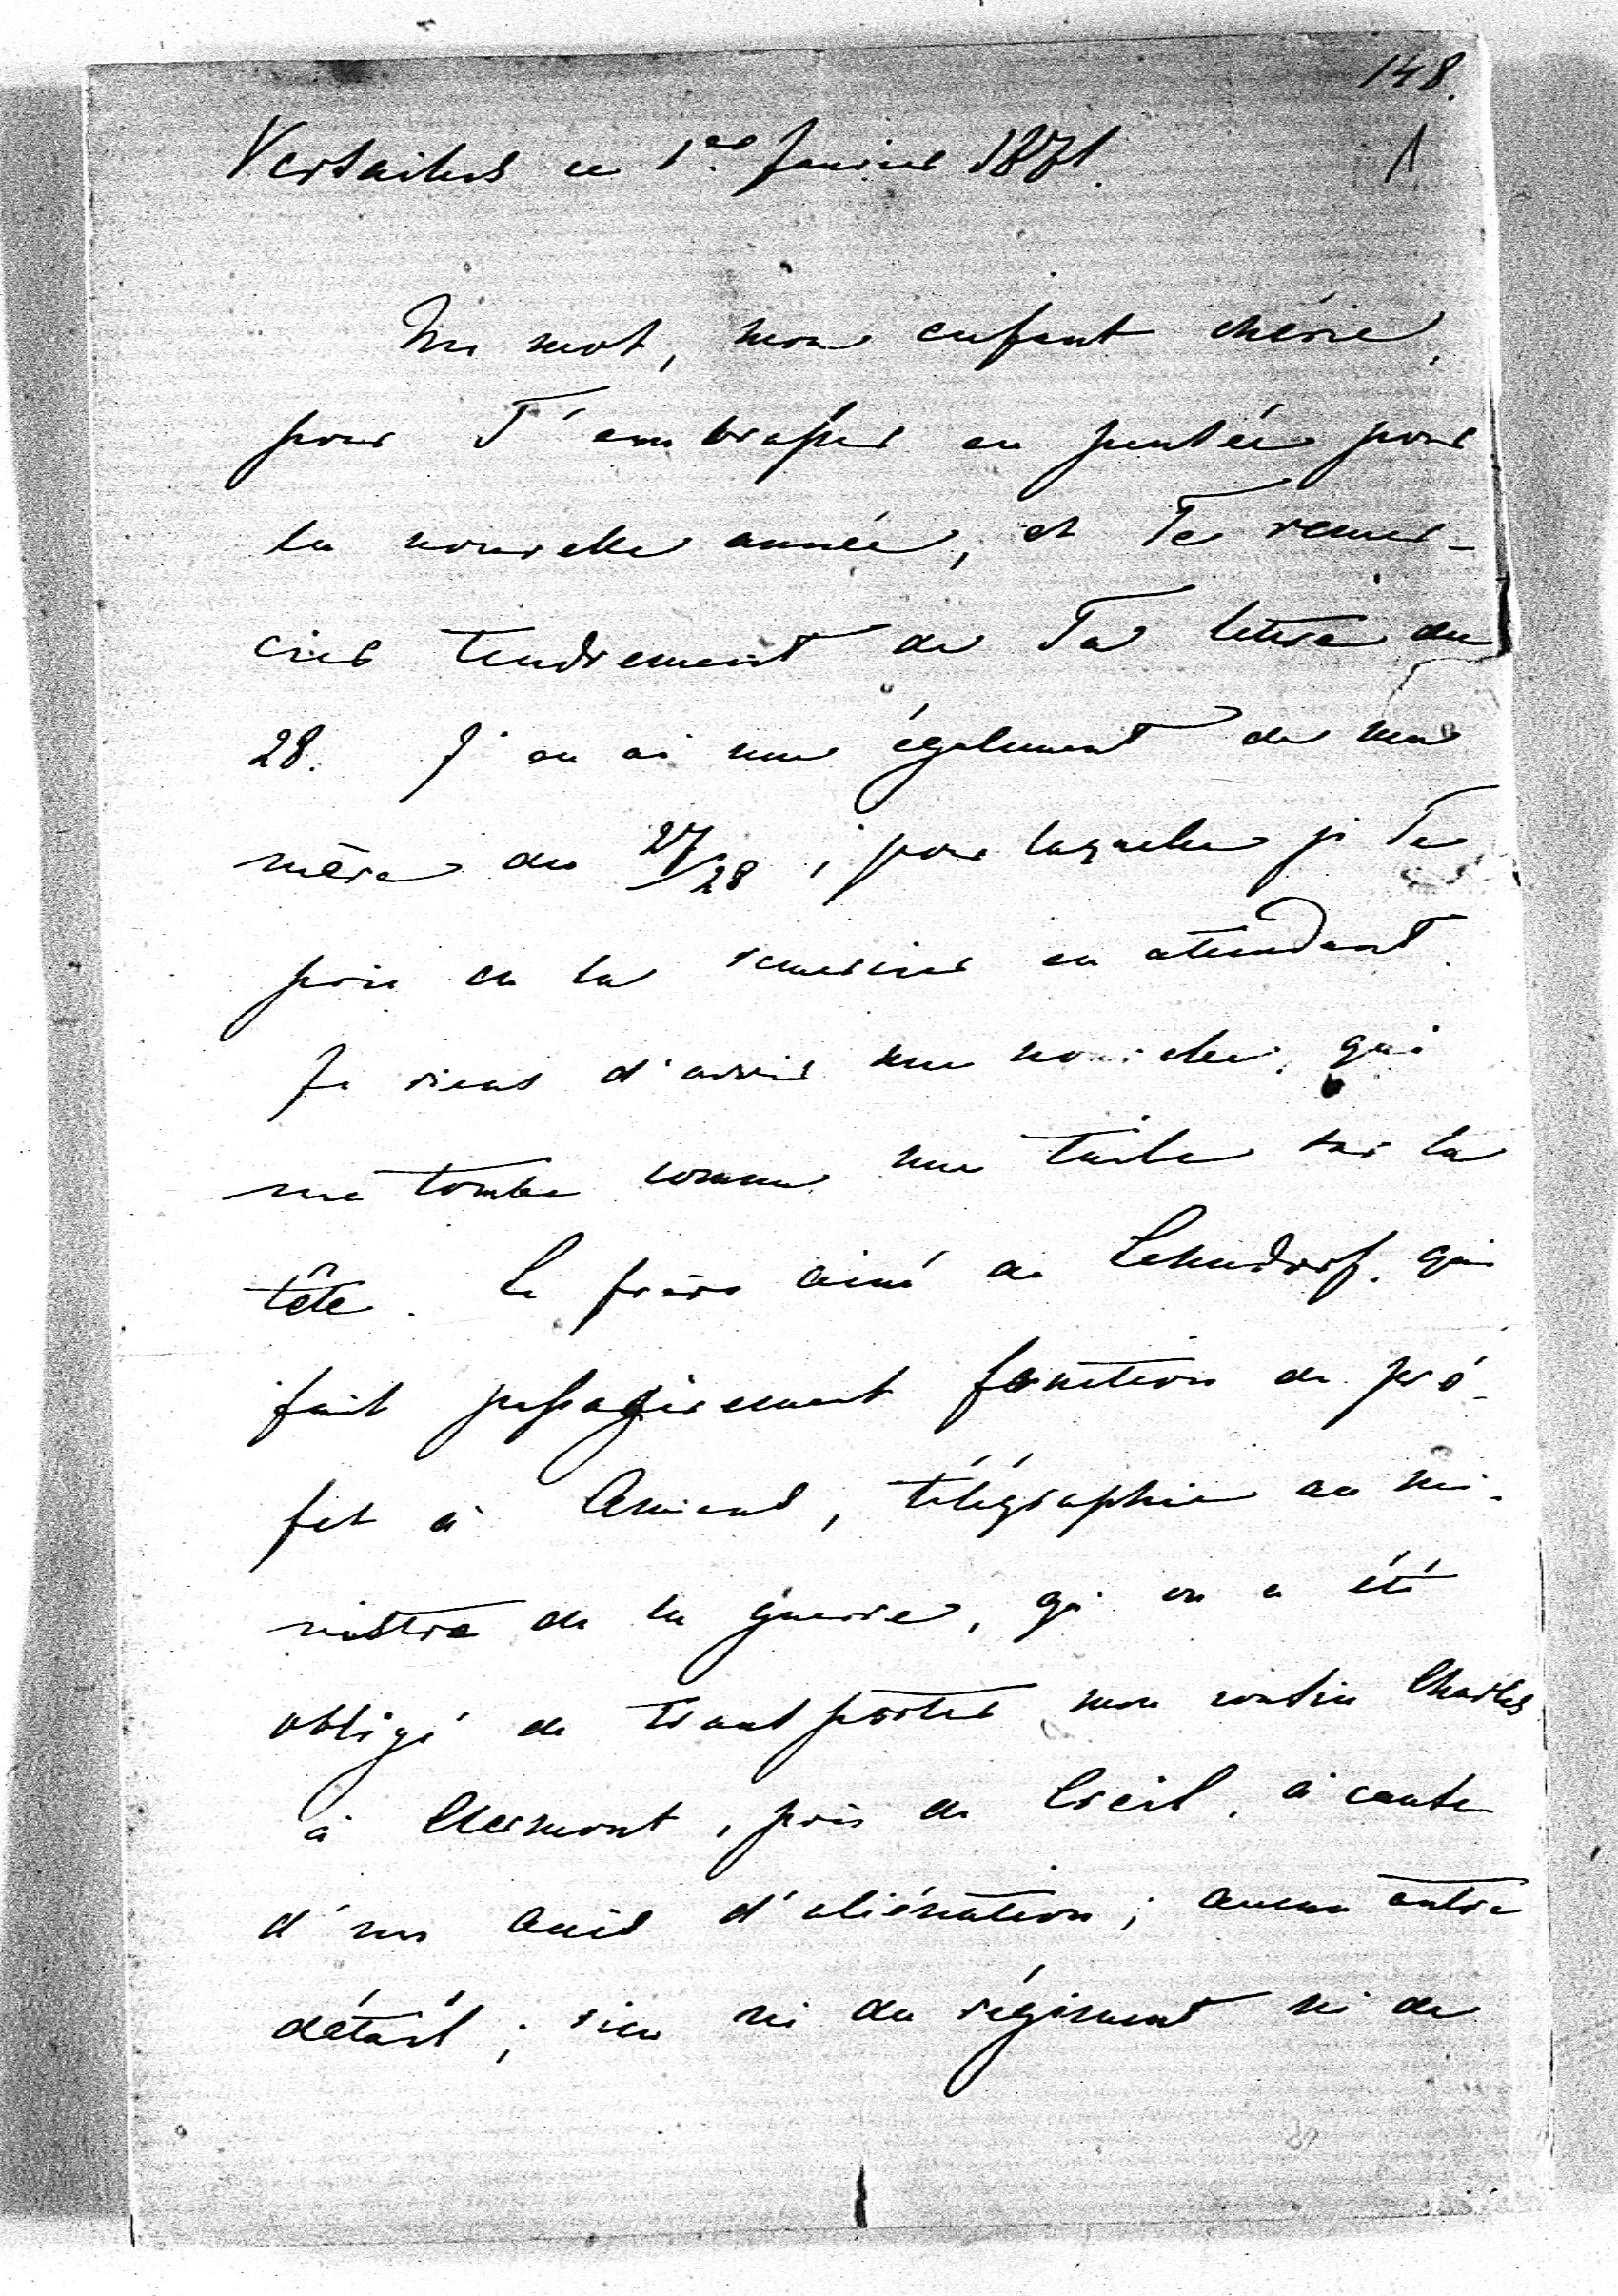 148.
1
Versailles ce 1er Janvier 1871.
Un mot, mon enfant chérie,
pour T'embrasser en pensée pour
la nouvelle année, et Te remer-
cier tendrement de Ta lettre du
28. J'en ai une également de ma
mère du 27/28, pour laquelle je Te
prie de la remercier en attendant.
Je viens d'avoir une nouvelle, qui
me tombe comme une tuile sur la
tête. Le frère ainé de Lehndorf, qui
fait passagèrement fonction de pré-
fet à Amiens, télégraphie au mi-
nistre de la guerre, qu'on a été
obligé de transporter mon cousin Charles
à Clermont, près de Creil, à cause
d'un accès d'aliénation; aucun autre
détail; rien ni du régiment ni de